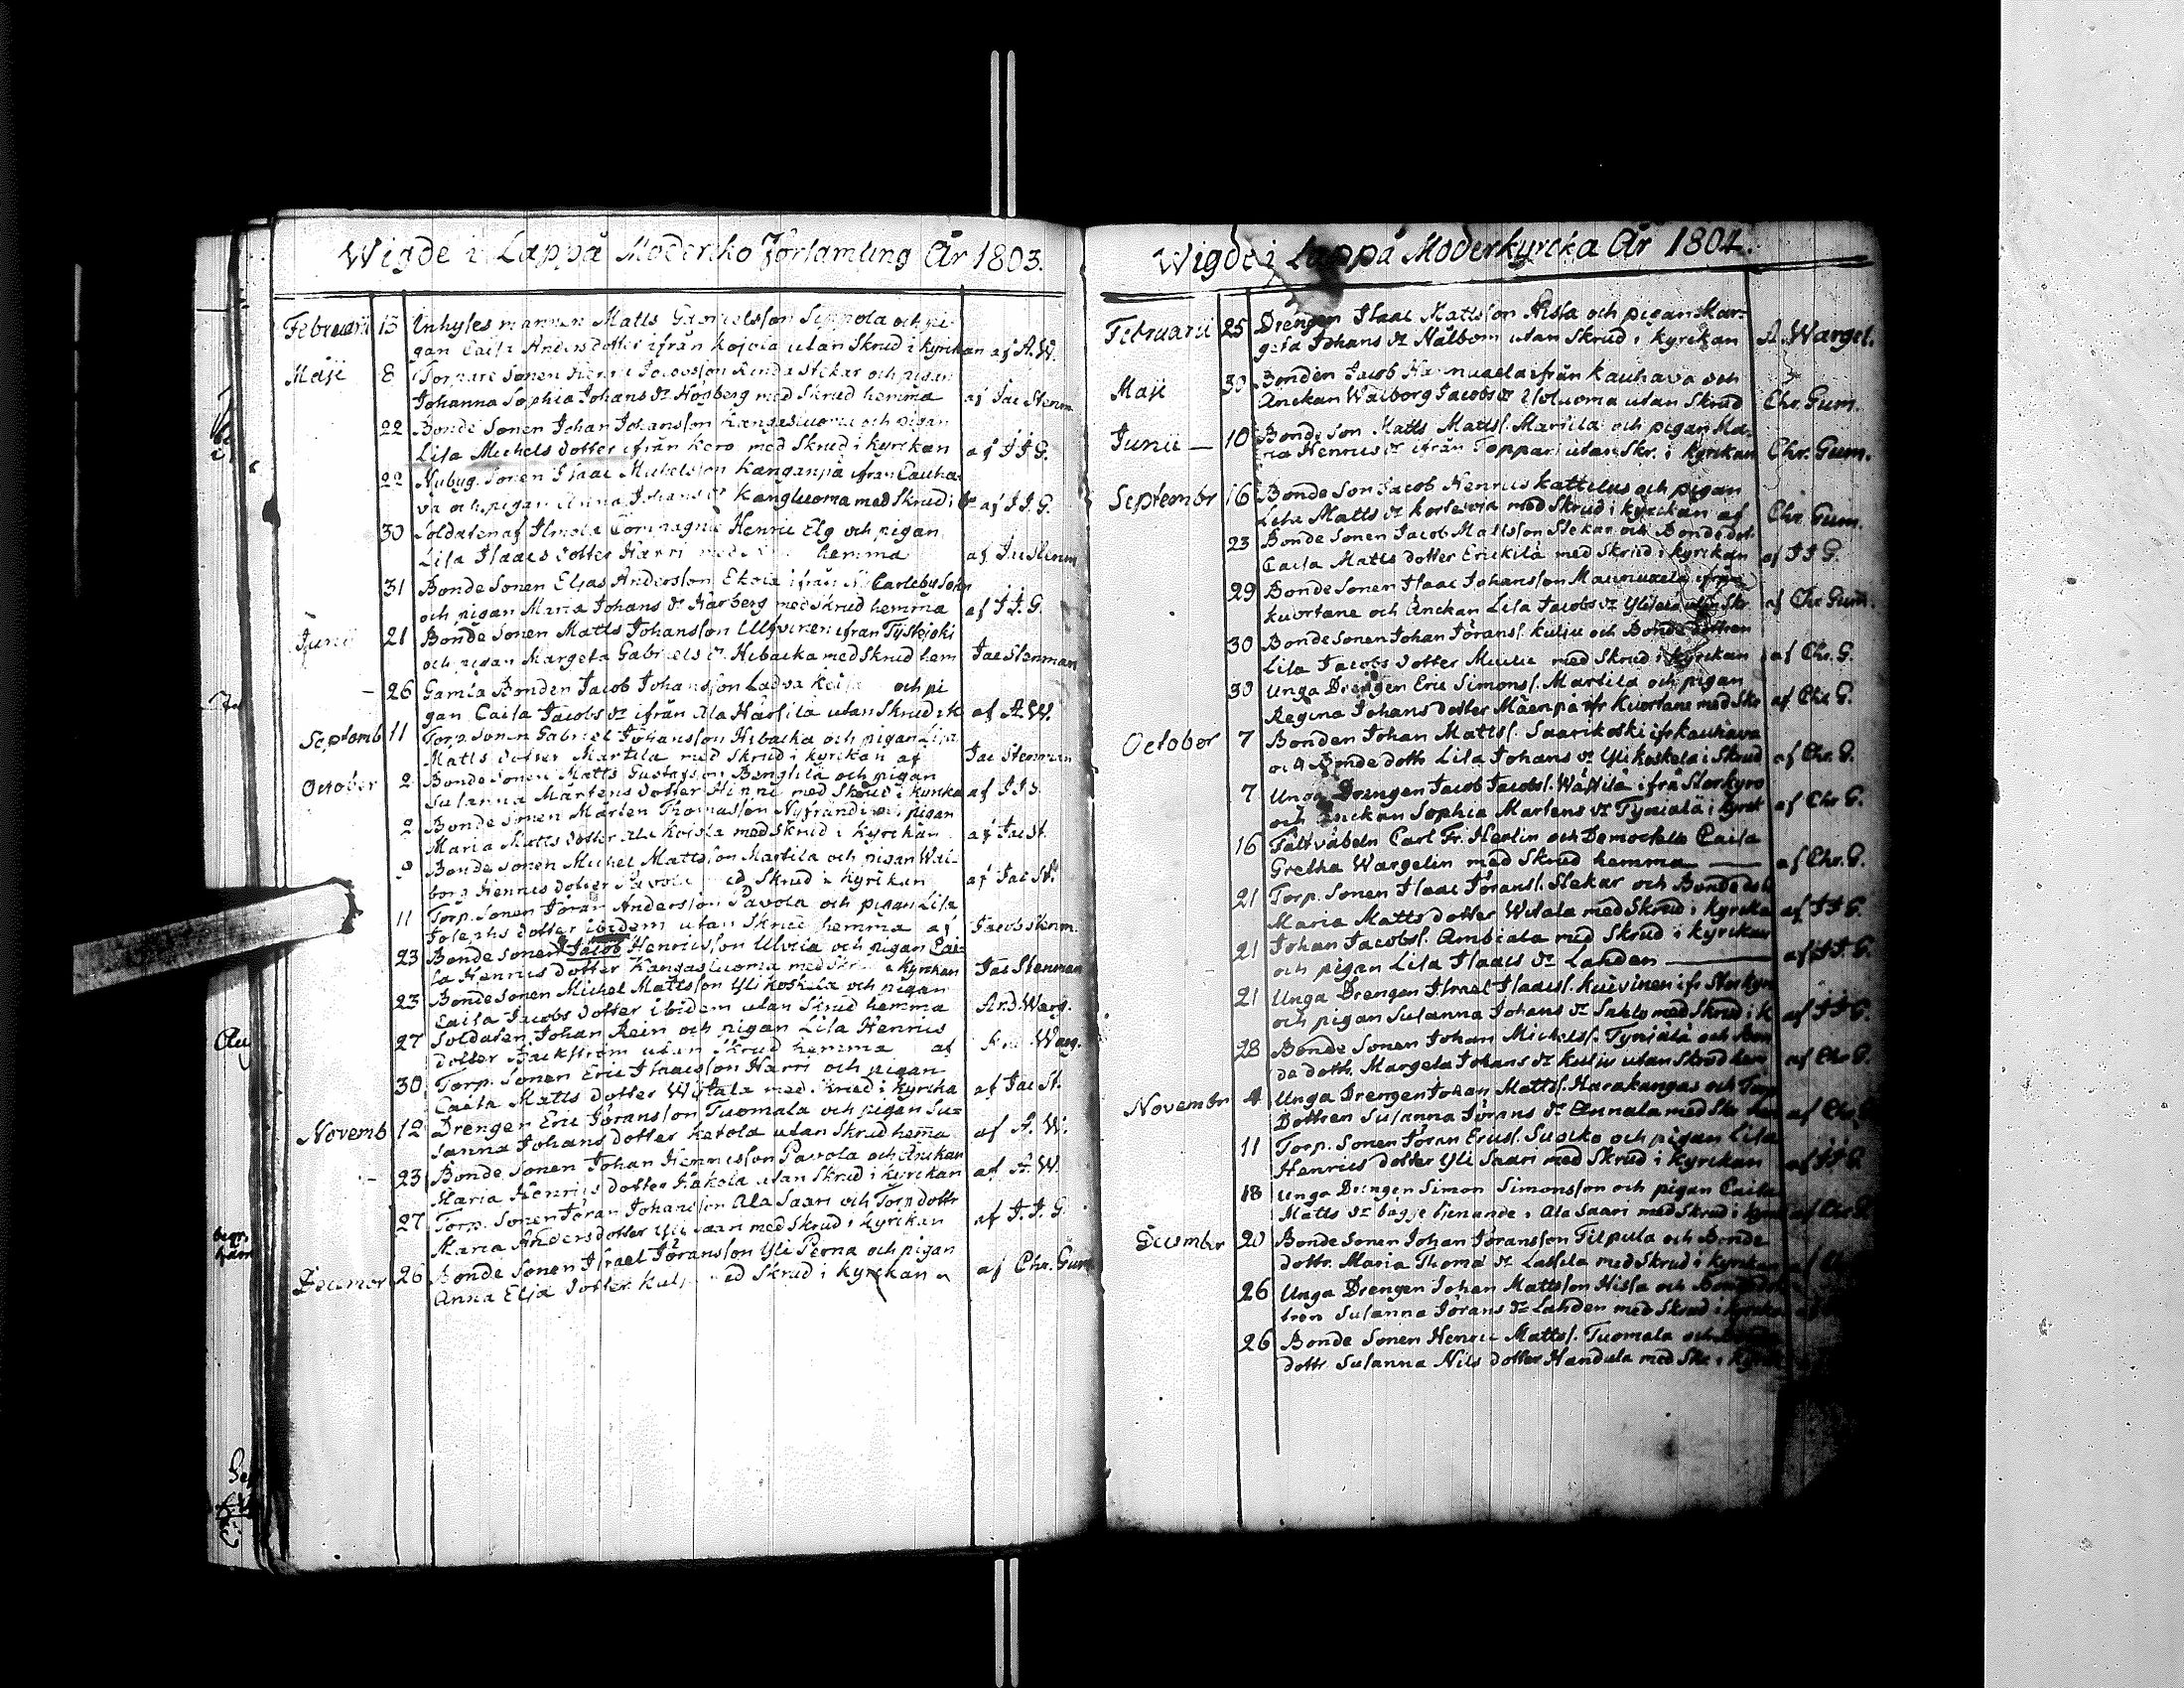 Wigde i Lappå Moderko Församling År 1803.
Februarii 13 Inhyses mannen Matts Gabrielsson Seppola och pi-
gan Caisa Anders dotter ifrån Kojola utan Skrud i Kyrkan af A.W.
Maji 8 Torpare Sonen Henric Jacobsson Stekar och pigan
Johanna Sophia Johans dr Högberg med Skrud hemma af Jac Stenm
22 Bonde Sonen Johan Johansson Kangasluoma och pigan
Lisa Michels dotter ifrån Kero med Skrud i Kyrckan af J J G.
22 Nybyg. Sonen Isaac Michelsson Kanganpä ifrån Cauha-
va och pigan Anna Johans dr Kangluoma med Skrud i af J J. G.
30 Soldaten af Ilmola Compagnie Henric Elg och pigan
Lisa Isaacs dotter Harri med hemma af
31 Bonde Sonen Elias Andersson Ekola ifrån Carleby Sokn
och pigan Maria Johans dr Harberg med Skrud hemma af J J. G.
Junii 21 Bonde Sonen Matts Johansson Ulfvinen ifrån Tyskjoki
och pigan Margeta Gabriels dr Hibacka med Skrud hem Jac Stenman
— 26 Gamla Bonden Jacob Johansson och pi
gan Caisa Jacobs dr ifrån Ala Hassila utan Skrud i K af A.W.
Septemb 11 Torp. Sonen Gabriel Johansson Hibacka och pigan Lisa
Matts dotter Martila med Skrud i kyrckan af Jac Stenman
October 2 Bonde Sonen Matts Gustafsson Bengtila och pigan
Susanna Mårtens dotter Hinni med Skrud i kyrcka af J J G.
2 Bonde Sonen Mårten Thomasson Nyfrandi och pigan
Maria Matts dotter Ala Kojola med Skrud i Kyrckan af Jac St.
9 Bonde Sonen Michel Mattsson Martila och pigan Wal-
borg Henrics dotter Pavola med Skrud i Kyrckan af Jac St.
11 Torp. Sonen Jöran Andersson Pavola och pigan Lisa
Josephs dotter ibidem utan Skrud hemma af Jacob Stenm.
23 Bonde Sonen Jacob Henricsson Ulvila och pigan Cai-
sa Henrics dotter Kangasluoma med Skrud i Kyrckan Jac Stenman
23 Bonde Sonen Michel Mattsson Yli Koskela och pigan
Caisa Jacobs dotter ibidem utan Skrud hemma And. Warg.
27 Soldaten Johan Rein och pigan Lisa Henrics
dotter Backström utan Skrud hemma af And. Warg.
30 Torp. Sonen Eric Isaacsson Harri och pigan
Caisa Matts dotter Witala med Skrud i Kyrcka af Jac St.
Novemb 12 Drengen Eric Jöransson Tuomala och pigan Su-
sanna Johans dotter Ketola utan Skrud hemma af A. W.
— 23 Bonde Sonen Johan Henricsson Pavola och Änckan
Maria Henrics dotter Hakola utan Skrud i Kyrckan af A. W.
27 Torp. Sonen Jöran Johansson Ala Saari och Torp dottr
Maria Anders dotter Yli Saari med Skrud i Kyrckan af J. J. G.
Decembr 26 Bonde Sonen Israel Jöransson Yli Perna och pigan
Anna Elja dotter med Skrud i Kyrckan af Chr. Gum
Wigde i Lappå Moderkyrcka År 1804.
Februarii 25 Drengen Isaac Mattsson Hissa och pigan Mar-
geta Johans dr Hålbom utan Skrud i Kyrckan A. Wargel.
Maji 30 Bonden Jacob Hannuxela ifrån Kauhava och
Änckan Walborg Jacobs dr utan Skrud Chr. Gum.
Junii — 10 Bonde Son Matts Matts. Marsila och pigan Ma-
ria Henrics dr ifrån Toppari utan Skr. i Kyrckan Chr. Gum.
Septembr 16 Bonde Son Jacob Henrics Kattelus och pigan
Lisa Matts dr Kortesoja med Skrud i Kyrckan af Chr. Gum.
23 Bonde Sonen Jacob Mattsson Stekar och Bonde dot
Caisa Matts dotter Erickilä med Skrud i Kyrckan af J J G.
29 Bonde Sonen Isaac Johansson Maunuxela ifrån
Kuortane och Änckan Lisa Jacobs dr utan Skr. af Chr Gum.
30 Bonde Sonen Johan Jörans. Kulju och Bonde dottren
Lisa Jacobs dotter med Skrud i Kyrckan af Chr. G.
30 Unga Drengen Eric Simons. Martila och pigan
Regina Johans dotter Mäenpä ifr Kuortane med Skr af Chr G.
October 7 Bonden Johan Matts. Saarikoski ifr Kauhava
och Bonde dottr Lisa Johans dr Ylikoskela i Skrud af Chr. G.
7 Unga Drengen Jacob Jacobs. Wäsilä ifrå Storkyro
och Änckan Sophia Martens dr Tyniälä i Kyrck af Chr. G.
16 Fältväbeln Carl Fr. Herlin och Demoiselle Caisa
Gretha Wargelin med Skrud hemma — af Chr. G.
21 Torp. Sonen Isaac Jörans. Stekar och Bonde dot
Maria Matts dotter Witala med Skrud i Kyrcka af J J G.
21 Johan Jacobs. Ambiala med Skrud i Kyrckan
och pigan Lisa Isaacs dr Lahden — af J J. G.
21 Unga Drengen Israel Isaacs. Kuivinen ifr Storkyr
och pigan Susanna Johans dr Sahlo med Skrud i K af J J G.
28 Bonde Sonen Johan Michels. Tyniälä och Bon
de dottr. Margeta Johans dr Kulju utan Skrud hem af Chr G.
Novembr 4 Unga Drengen Johan Matts. Harakangas och Torp.
Dottren Susanna Jörans dr Annala med Skr hem af Chr. G
11 Torp. Sonen Jöran Erics. Susiko och pigan Lisa
Henrics dotter Yli Saari med Skrud i Kyrckan af J J G
18 Unga Drengen Simon Simonsson och pigan Caisa
Matts dr bägge tjenande i Ala Saari med Skrud i Kyrck af Chr. G
Decembr 20 Bonde Sonen Johan Jöransson Filpula och Bonde
dottr. Maria Thoma dr Lassila med Skrud i Kyrckan af
26 Unga Drengen Johan Mattsson Hissa och Bonde dot
tren Susanna Jörans dr Lahden med Skrud i Kyrckan
26 Bonde Sonen Henric Matts. Tuomala och
dottr Susanna Nils dotter Handula med Skr i